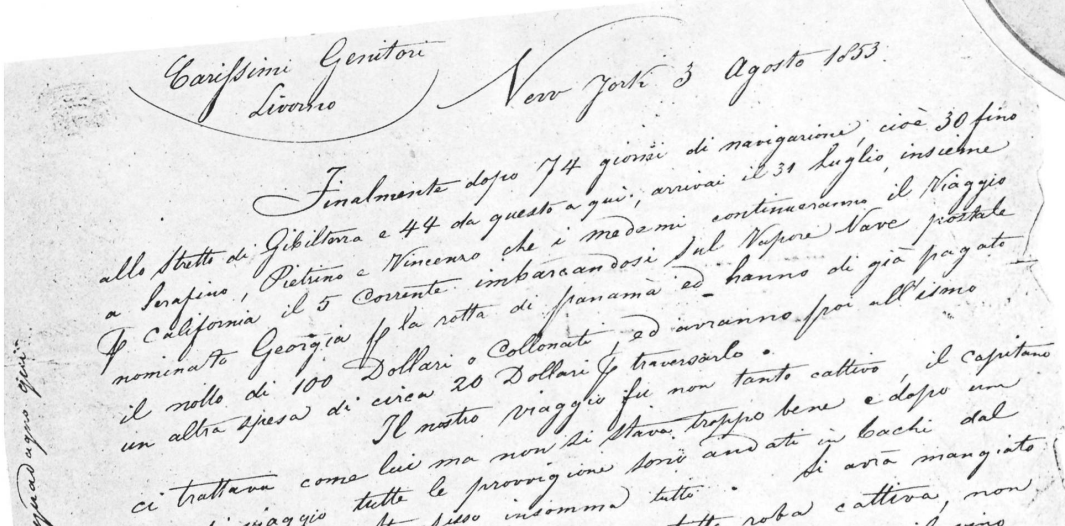 Carissimi Genitori
Livorno
New York 3 Agosto 1853.
Finalmente dopo 74 giorni di navigazione, cioè 30 fino
allo Stretto di Gibilterra e 44 da questo a qui, arrivai il 31 Luglio, insieme
a Serafino, Pietrino e Vincenzo che i medemi continueranno il Viaggio
California il 5 Corrente imbarcandosi sul Vapore Nave postale
nominato Georgia la rotta di panamà ed hanno di già pagato
il nollo di 100 Dollari o Collonati, ed avranno poi all'ismo
un altra spesa di circa 20 Dollari traversarlo.
Il nostro viaggio fu non tanto cattivo, il Capitano
ci trattava come lui ma non si stava troppo bene e dopo un
viaggio tutte le provvigione sono andati in bachi dal
insomma tutto. Si avrà mangiato
roba cattiva, non
il vino
guadagno qui